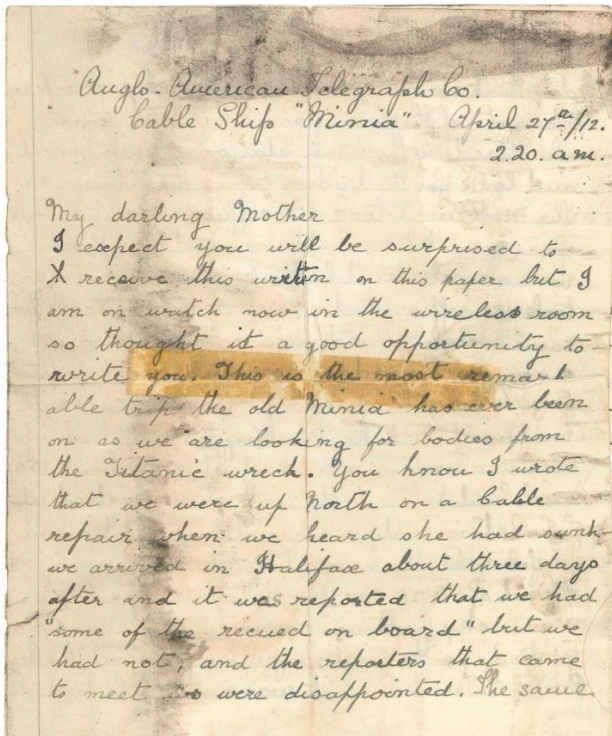 Anglo-American Telegraph Co.
Cable Ship "Minia". April 27th/12.
2.20. a.m.
My darling Mother
I expect you will be surprised to
receive this written on this paper but I
am on watch now in the wireless room
so thought it a good opportunity to
write you. This is the most remark
able trip the old Minia has ever been
on as we are looking for bodies from
the Titanic wreck. You know I wrote
that we were up North on a Cable
repair when we heard she had sunk
we arrived in Halifax about three days
after and it was reported that we had
"some of the recued on board" but we
had not, and the reporters that came
to meet us were disappointed. The same